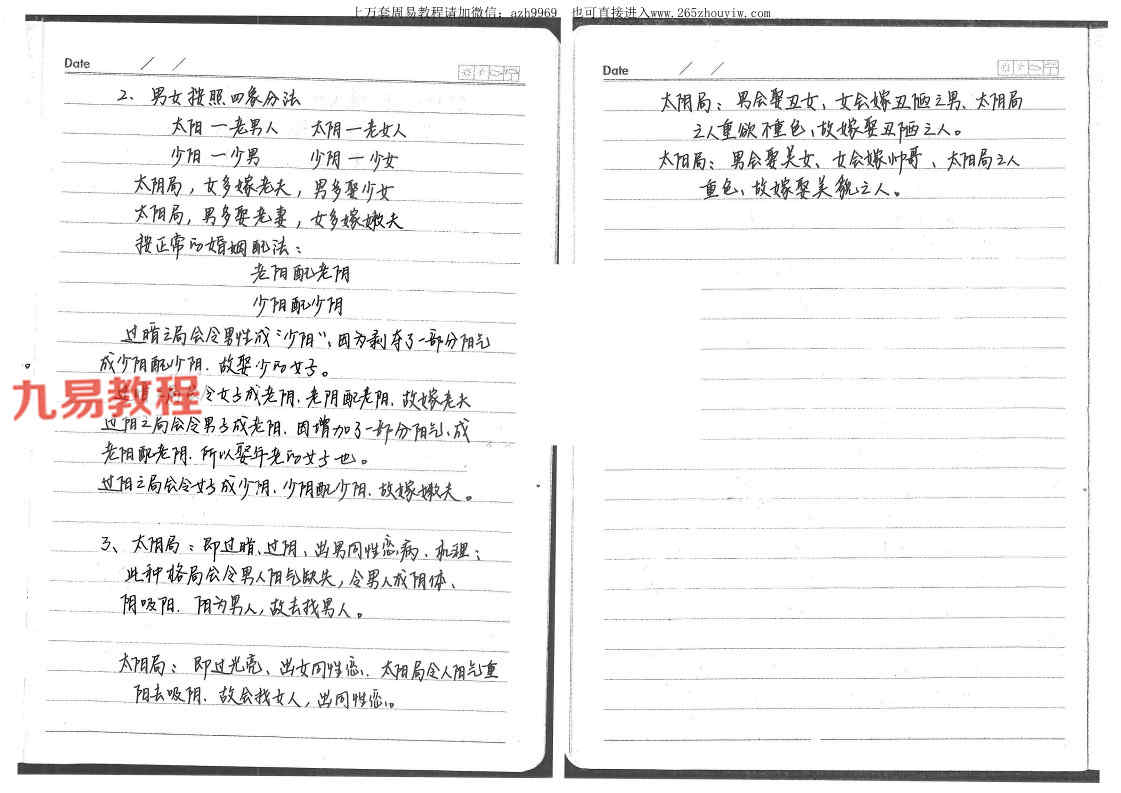 上万套周易教程请加微信：azh9969 也可直接进入www.265zhouyiw.com
Date / /
2、男女按照四象分法
太阳—老男人 太阴—老女人
少阳—少男 少阴—少女
太阴局，女多嫁老夫，男多娶少女
太阳局，男多娶老妻，女多嫁嫩夫
按正常的婚姻配法：
老阳配老阴
少阳配少阴
过暗之局会令男性成“少阳”，因为剥夺了一部分阳气
成少阳配少阴．故娶少的女子。
九易教程
会令女子成老阴．老阴配老阳．故嫁老夫
过阳之局会令男子成老阳．因增加了一部分阳气，成
老阳配老阴．所以娶年老的女子也。
过阳之局会令女子成少阴．少阴配少阳．故嫁嫩夫。
3、太阴局：即过暗、过阴、出男同性恋病．机理：
此种格局会令男人阳气缺失，令男人成阴体、
阴吸阳．阳为男人，故去找男人。
太阳局：即过光亮、出女同性恋．太阳局令人阳气重
阳去吸阴．故会找女人，出同性恋。
Date / /
太阴局：男会娶丑女、女会嫁丑陋之男、太阴局
之人重欲不重色，故嫁娶丑陋之人。
太阳局：男会娶美女、女会嫁帅哥、太阳局之人
重色，故嫁娶美貌之人。